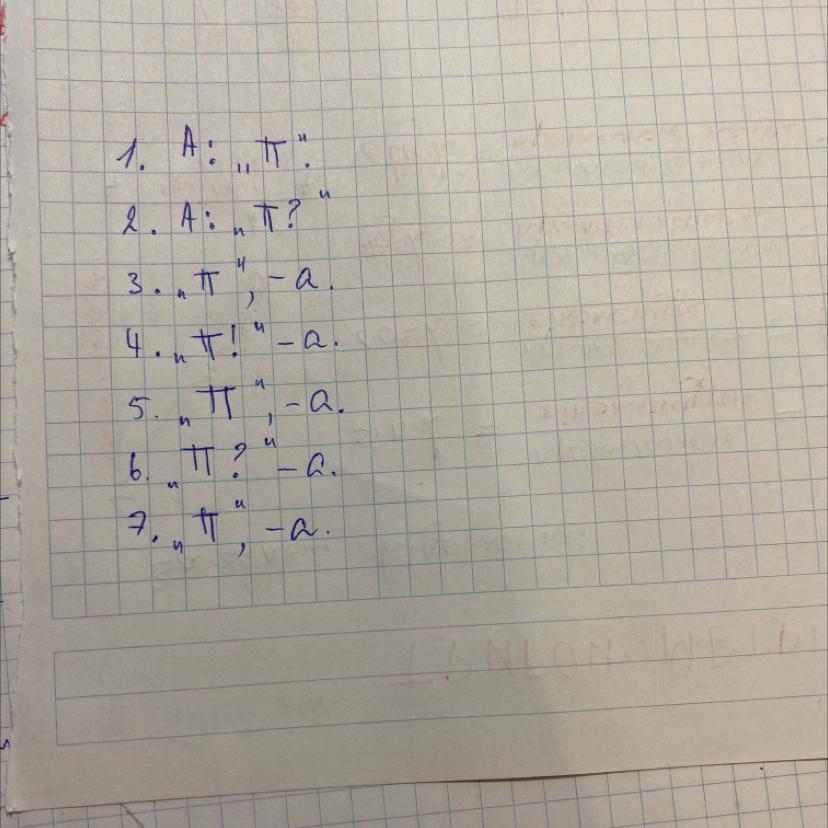 1. А: „П".
2. А: „П?"
3. „П", – а.
4. „П!" – а.
5. „П", – а.
6. „П?" – а.
7. „П", – а.